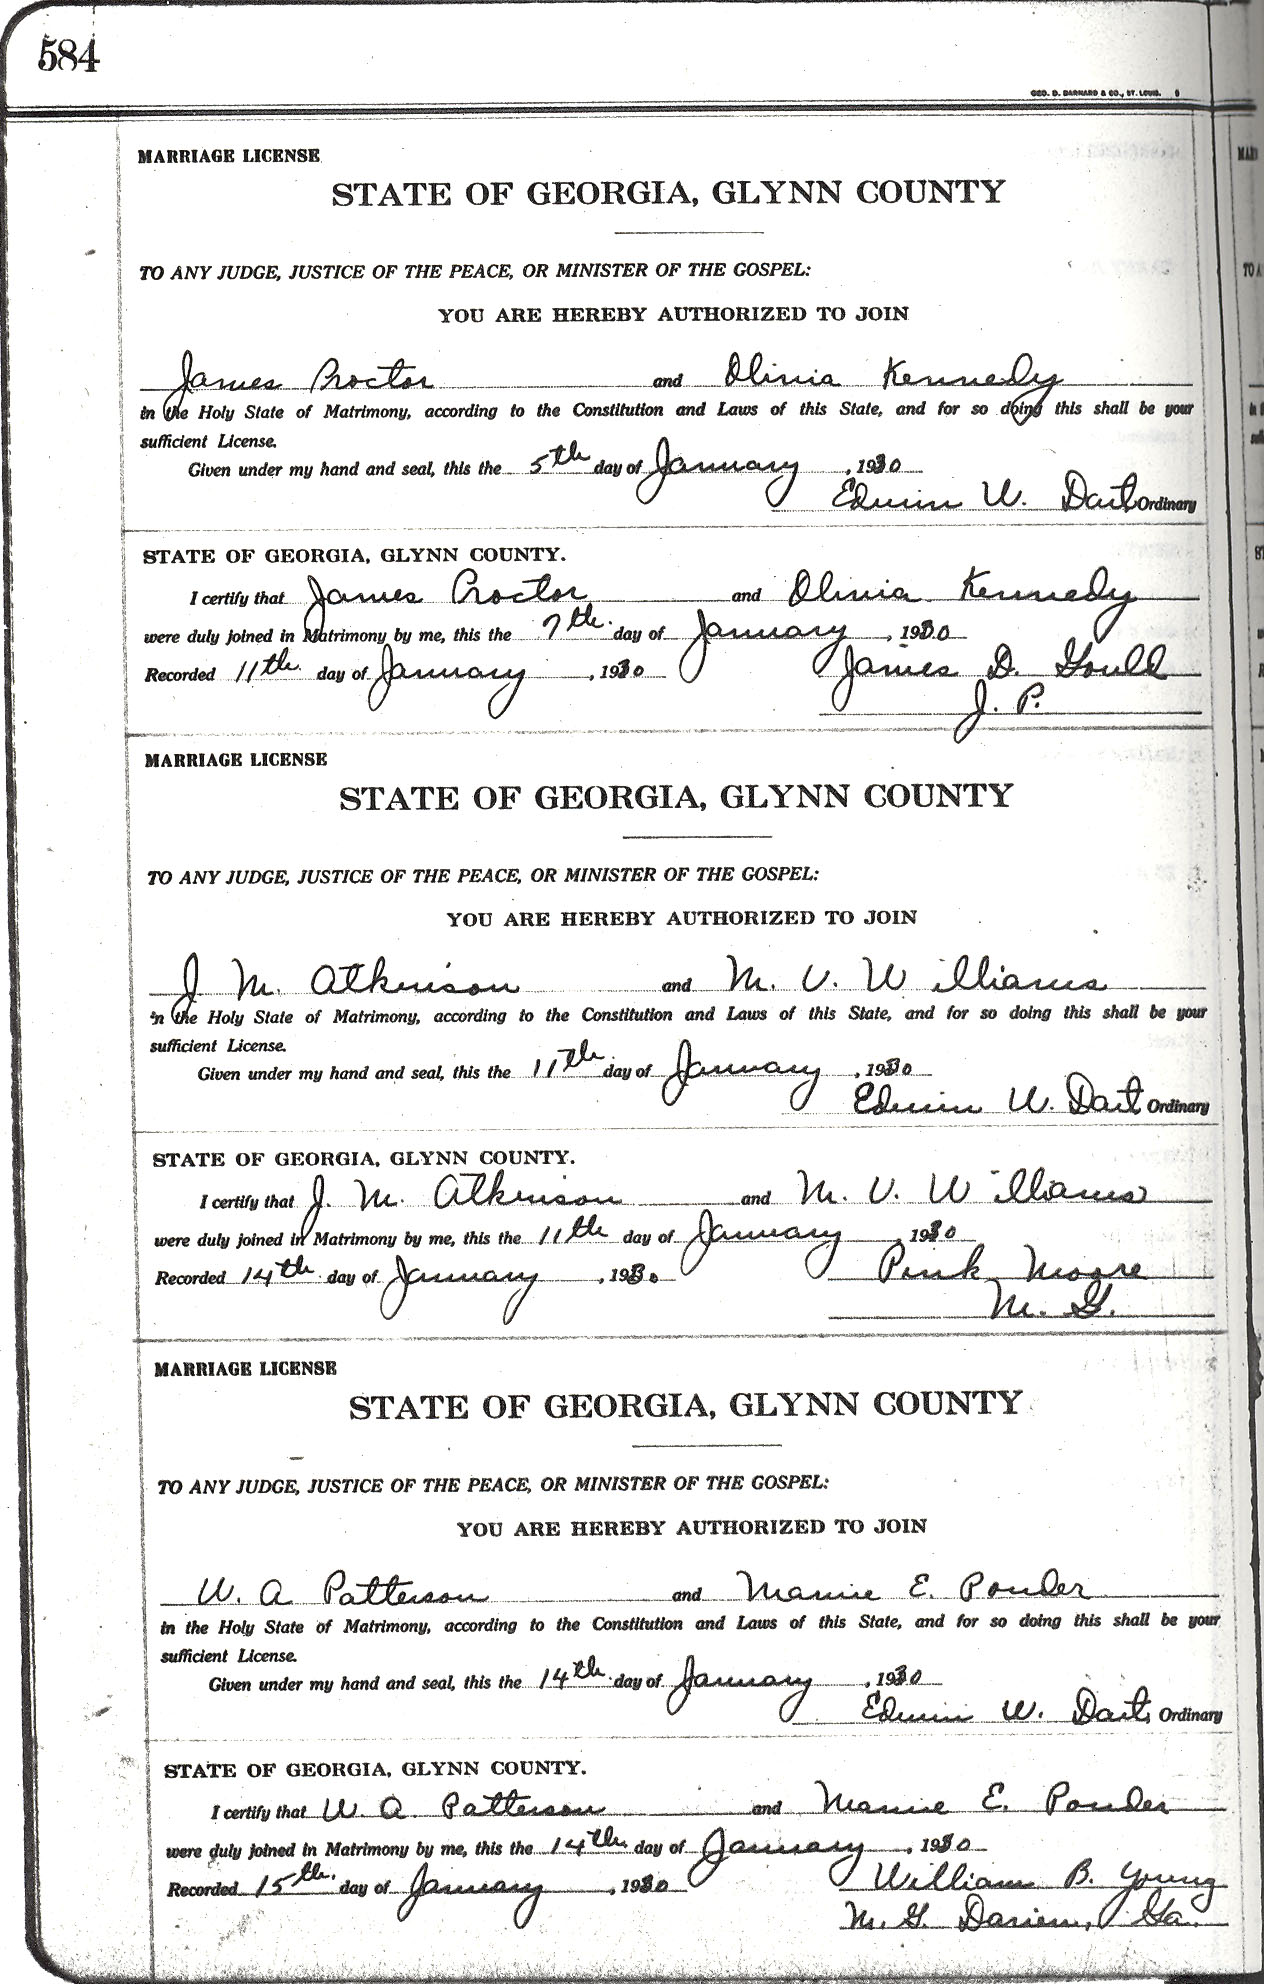 584
GEO. D. BARNARD & CO., ST. LOUIS.
MARRIAGE LICENSE
STATE OF GEORGIA, GLYNN COUNTY
TO ANY JUDGE, JUSTICE OF THE PEACE, OR MINISTER OF THE GOSPEL:
YOU ARE HEREBY AUTHORIZED TO JOIN
James Proctor and Olivia Kennedy
in the Holy State of Matrimony, according to the Constitution and Laws of this State, and for so doing this shall be your
sufficient License.
Given under my hand and seal, this the 5th day of January, 1930
Edwin W. Dart Ordinary
STATE OF GEORGIA, GLYNN COUNTY.
I certify that James Proctor and Olivia Kennedy
were duly joined in Matrimony by me, this the 7th. day of January, 1930
Recorded 11th. day of January, 1930 James D. Gould
J. P.
MARRIAGE LICENSE
STATE OF GEORGIA, GLYNN COUNTY
TO ANY JUDGE, JUSTICE OF THE PEACE, OR MINISTER OF THE GOSPEL:
YOU ARE HEREBY AUTHORIZED TO JOIN
J. M. Atkinson and M. V. Williams
in the Holy State of Matrimony, according to the Constitution and Laws of this State, and for so doing this shall be your
sufficient License.
Given under my hand and seal, this the 11th. day of January, 1930
Edwin W. Dart Ordinary
STATE OF GEORGIA, GLYNN COUNTY.
I certify that J. M. Atkinson and M. V. Williams
were duly joined in Matrimony by me, this the 11th day of January, 1930
Recorded 14th. day of January, 1930 Pink Moore
M. G.
MARRIAGE LICENSE
STATE OF GEORGIA, GLYNN COUNTY
TO ANY JUDGE, JUSTICE OF THE PEACE, OR MINISTER OF THE GOSPEL:
YOU ARE HEREBY AUTHORIZED TO JOIN
W. A Patterson and Mamie E. Ponder
in the Holy State of Matrimony, according to the Constitution and Laws of this State, and for so doing this shall be your
sufficient License.
Given under my hand and seal, this the 14th. day of January, 1930
Edwin W. Dart, Ordinary
STATE OF GEORGIA, GLYNN COUNTY.
I certify that W A. Patterson and Mamie E. Ponder
were duly joined in Matrimony by me, this the 14th. day of January, 1930
Recorded 15th. day of January, 1930 William B. Young
M. G. Darien, Ga.